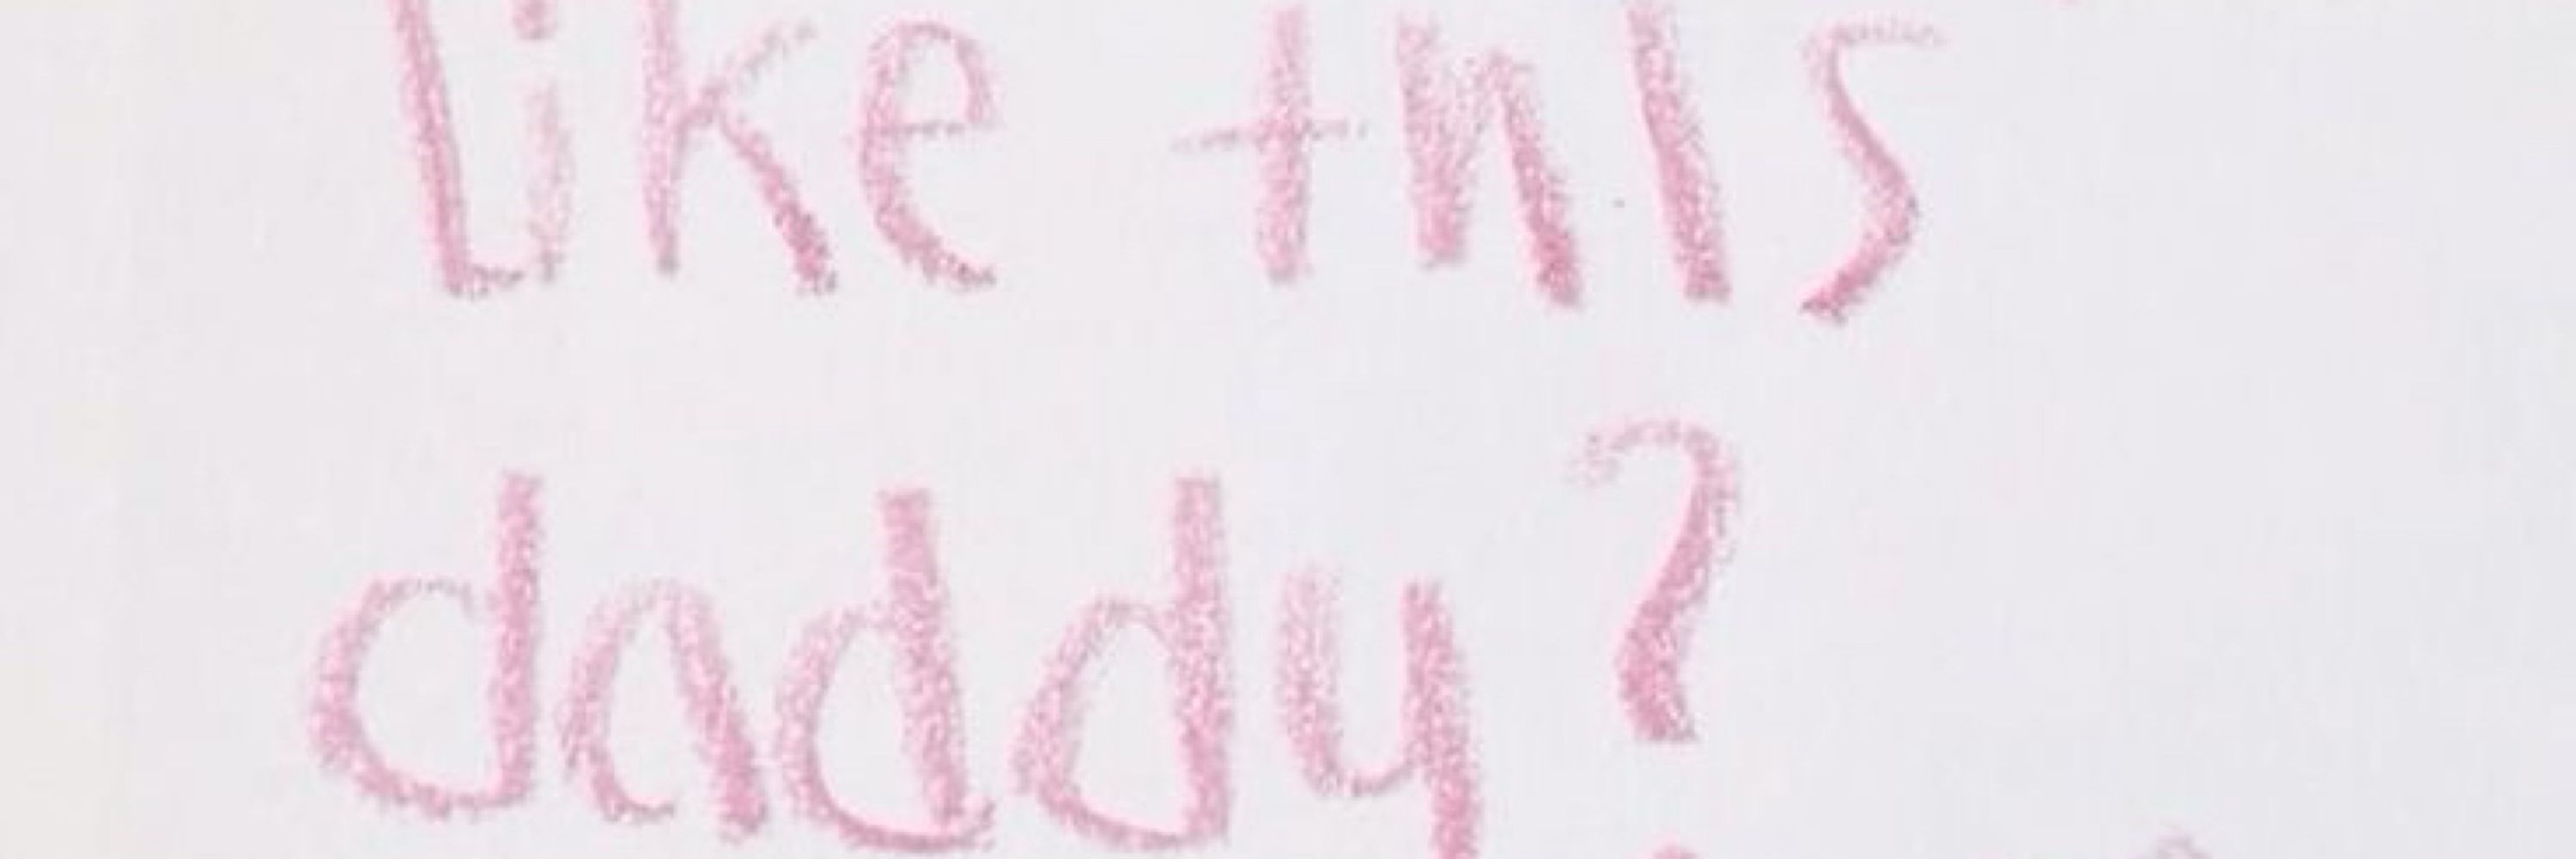 like this
daddy?